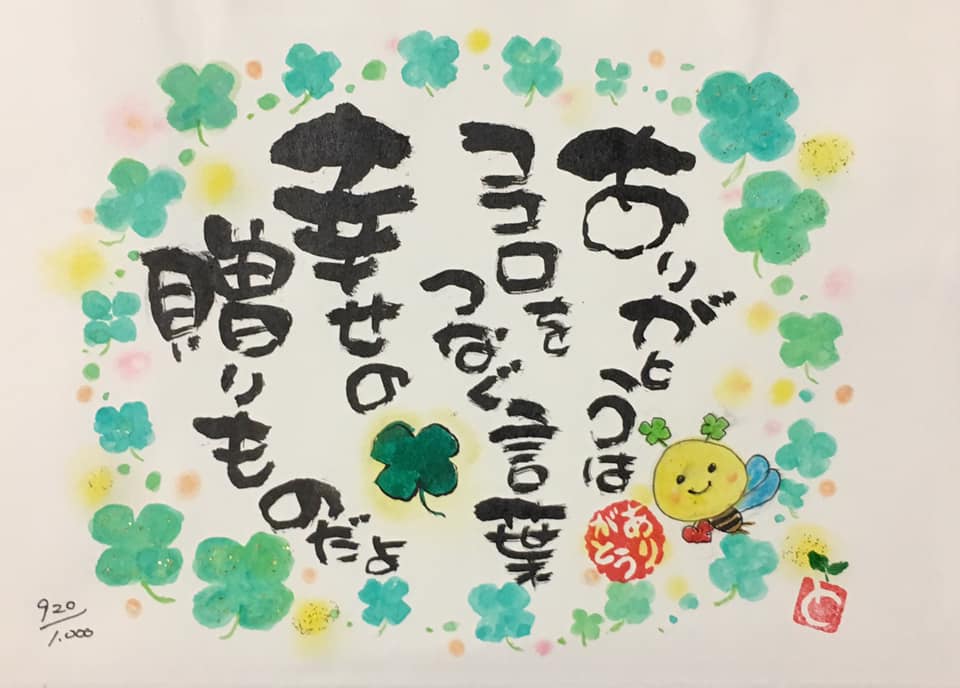 ありがとうは
ココロを
つなぐ言葉
幸せの
贈りものだよ
ありがとう
と
920/1.000